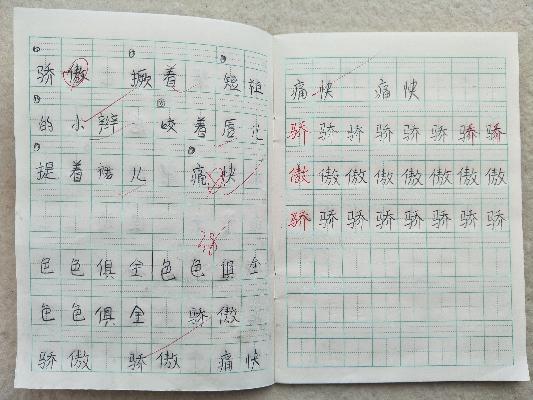 骄傲 撅着 短粗
的小辫 咬着唇儿
提着裙儿 痛快
色色俱全色色俱全
色色俱全 骄傲
骄傲 骄傲 痛快
痛快 痛快
骄骄骄骄骄骄骄骄
傲傲傲傲傲傲傲傲
骄骄骄骄骄骄骄骄